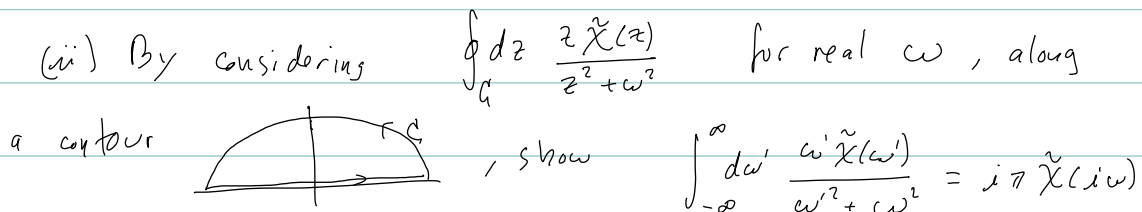 (ii) By considering ∮_C dz z χ̃(z) / (z² + ω²) for real ω, along
a contour C, show ∫_{-∞}^{∞} dω' ω' χ̃(ω') / (ω'² + ω²) = iπ χ̃(iω)